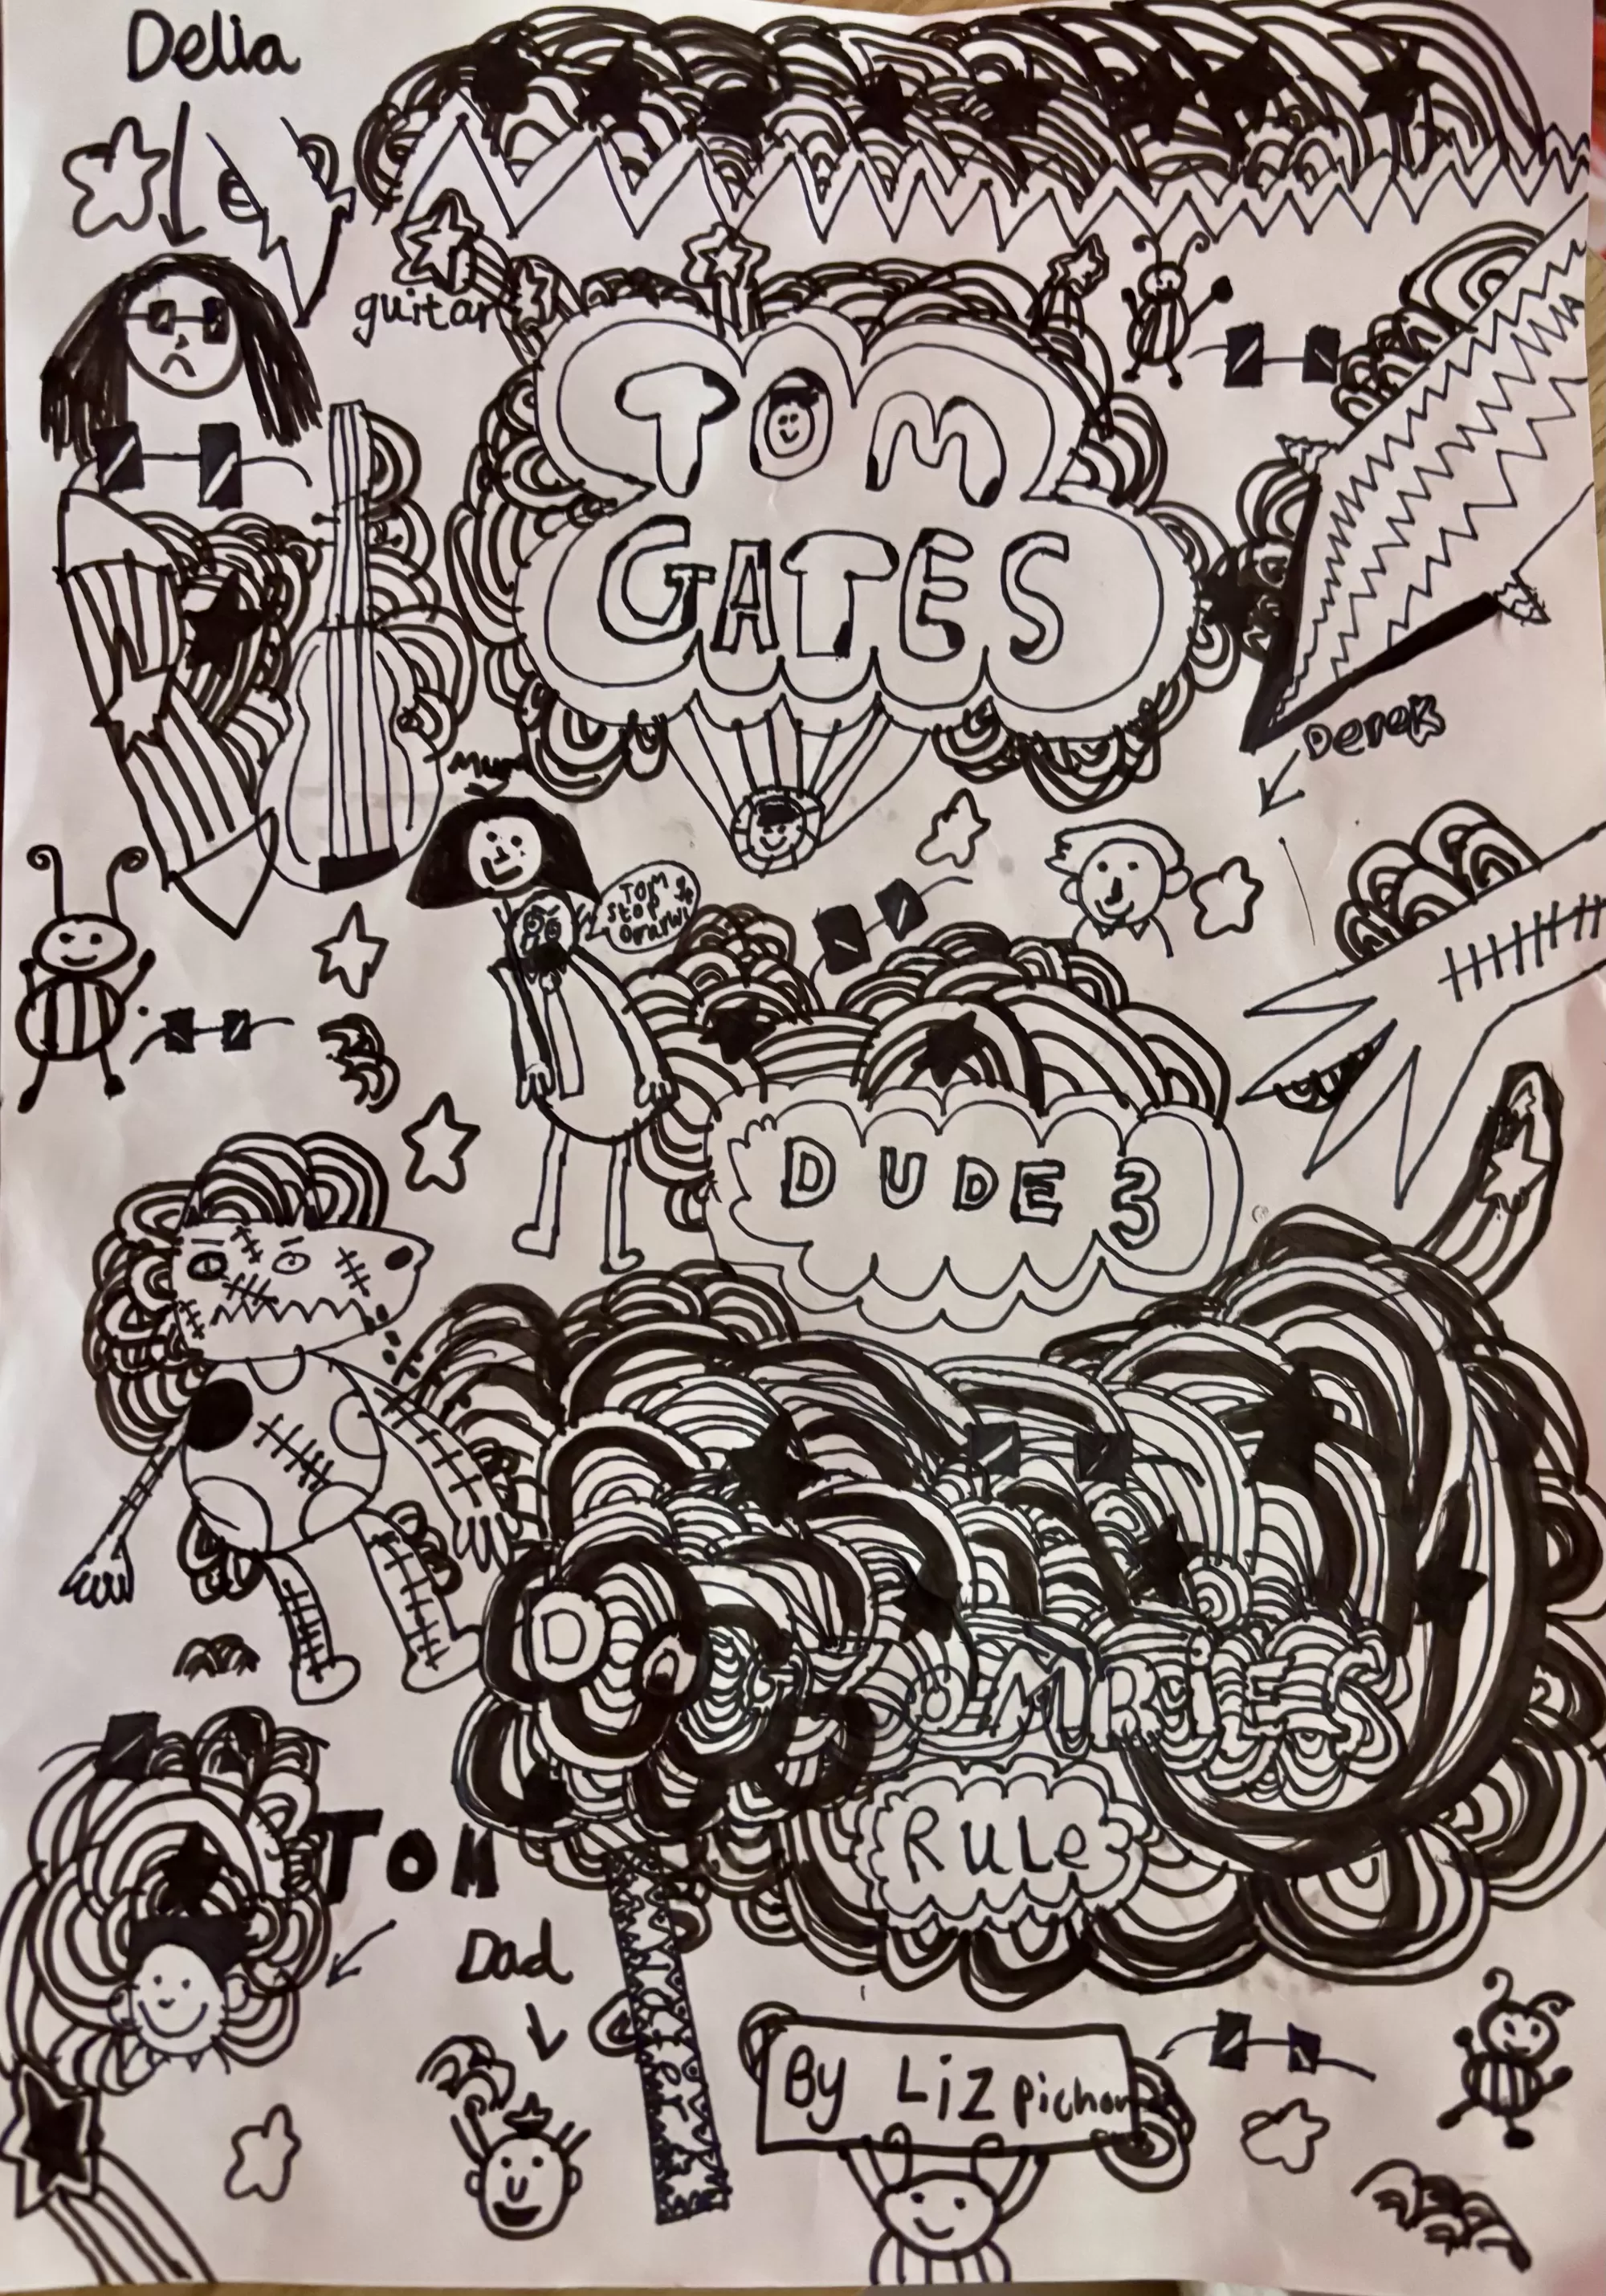 Delia
guitar
TOM
GATES
Derek
Mum
TOM
Stop
DUDE 3
DOG ZOMBIES
RULE
TOM
Dad
By Liz pichon